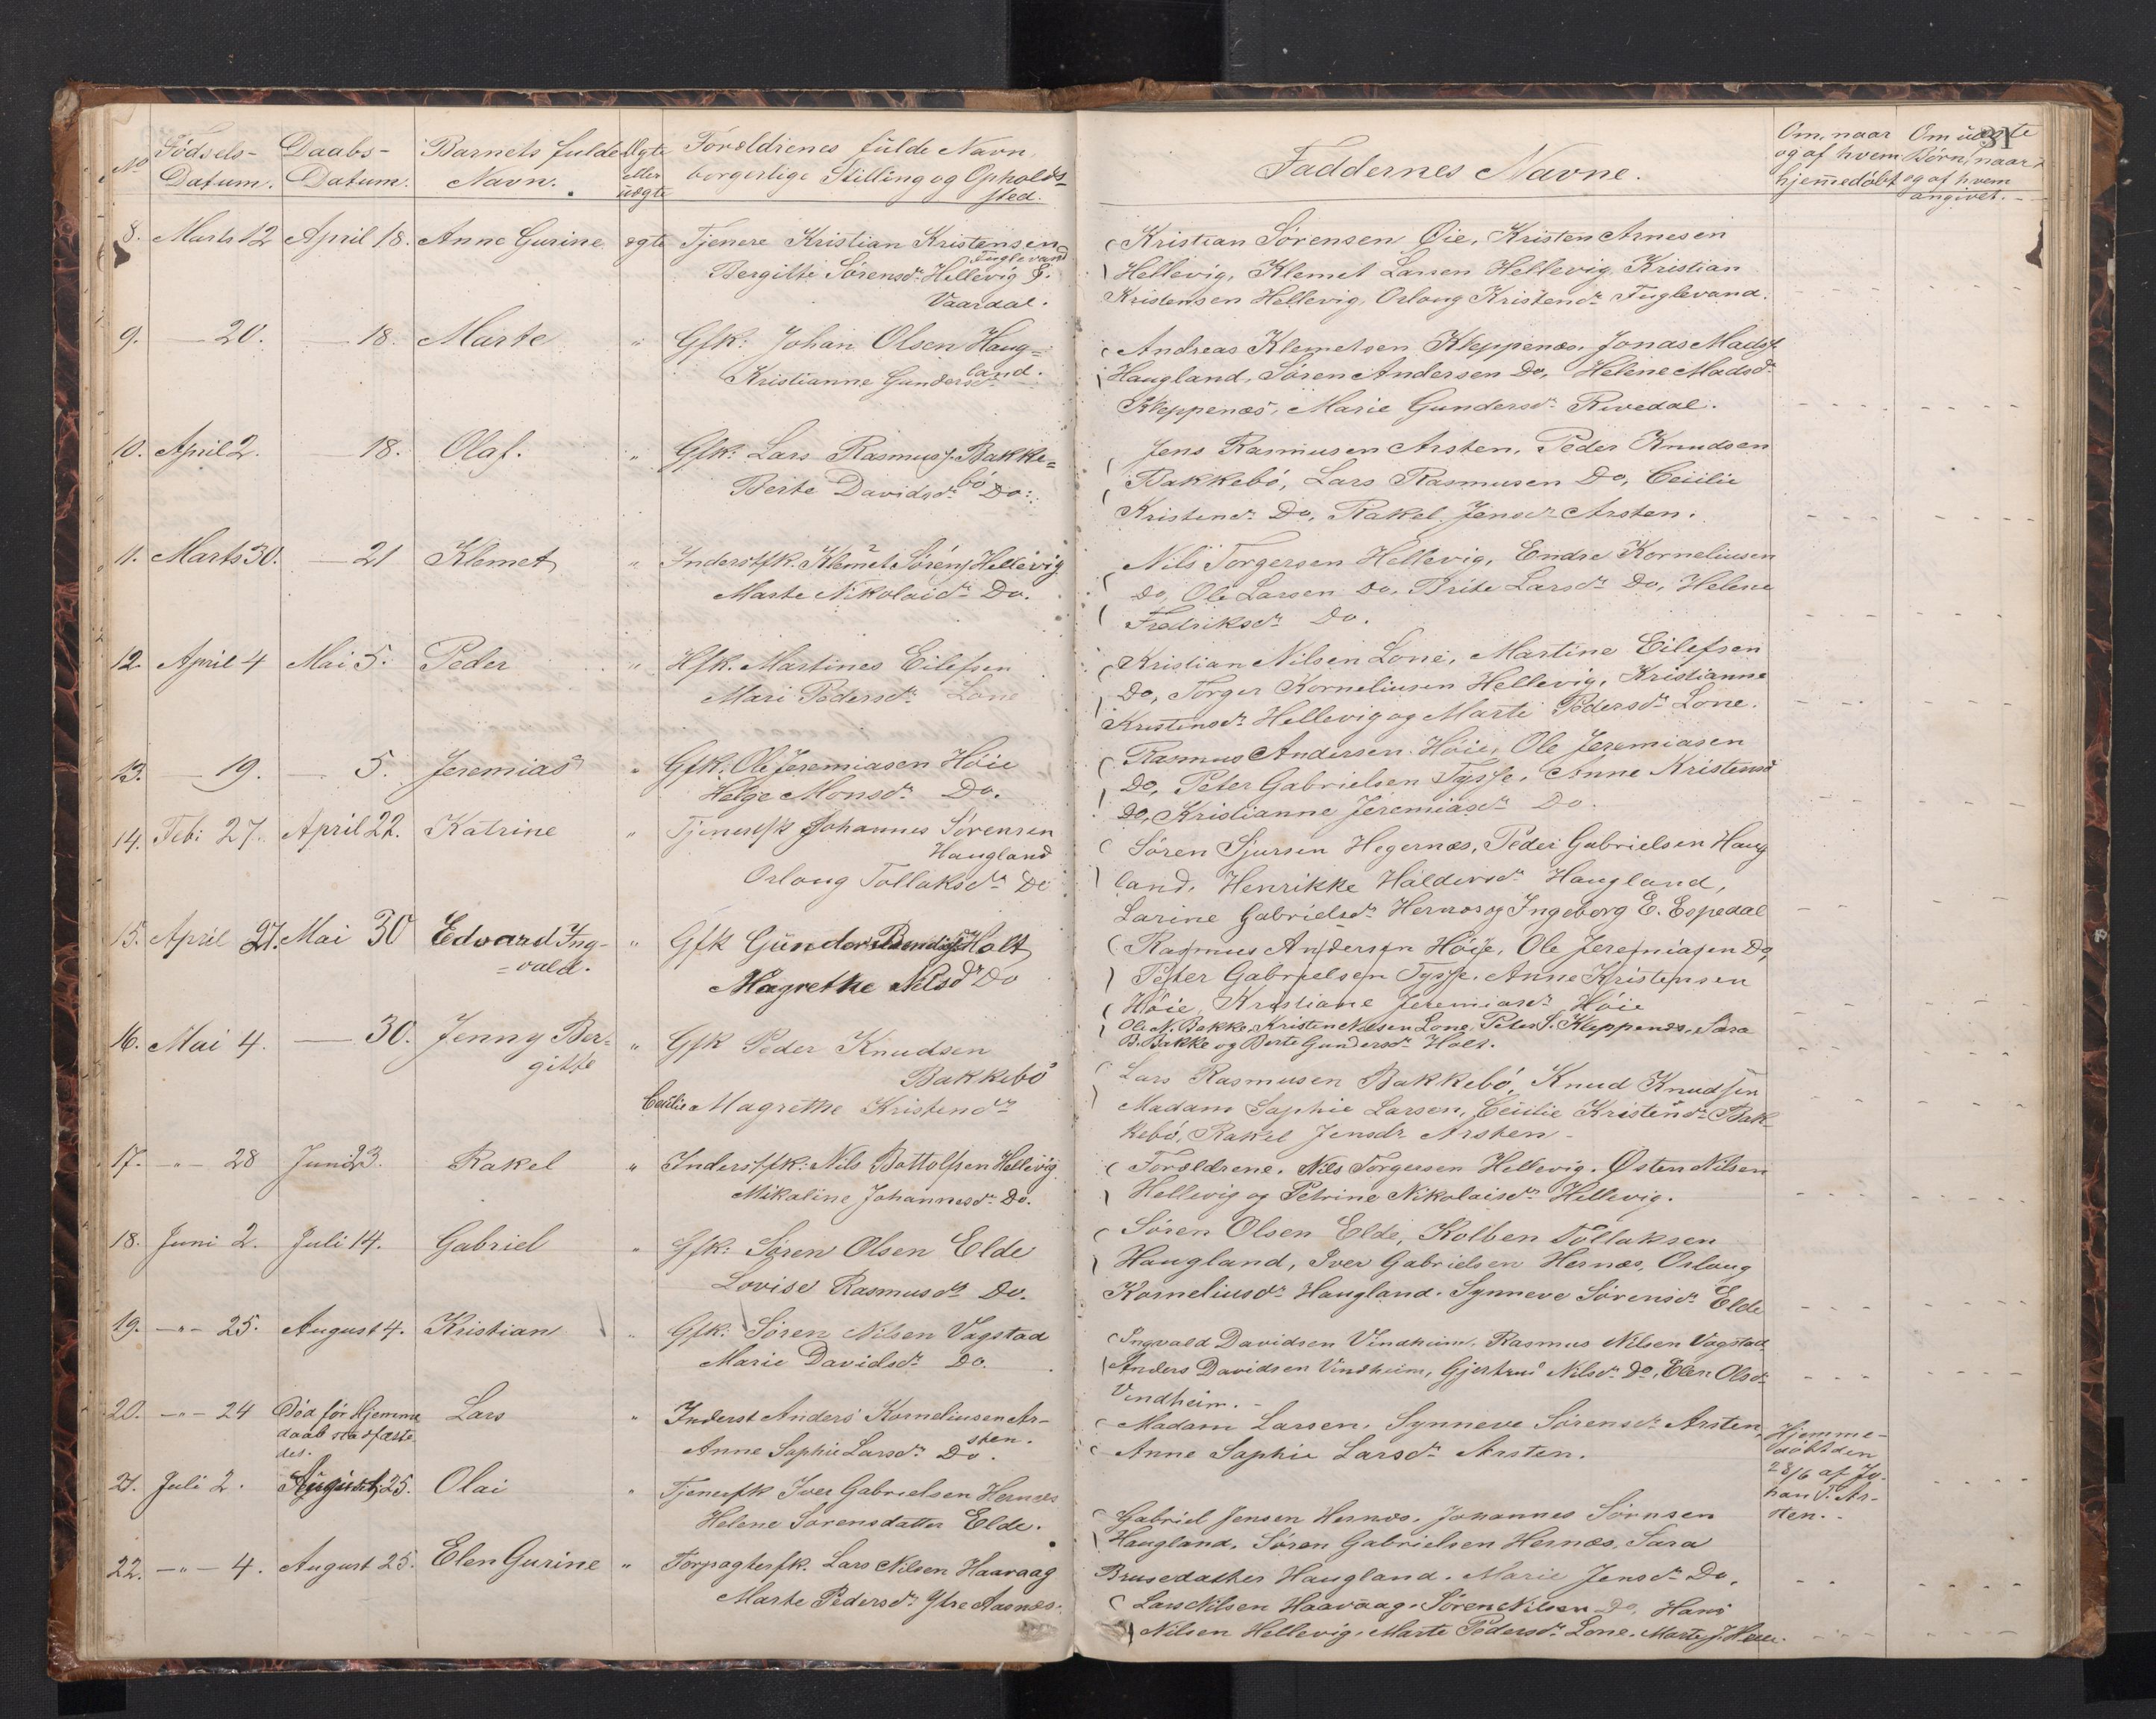 31
No Fødsels- Datum. Daabs- Datum. Barnets fulde Navn. Ægte eller uægte Forældrenes fulde Navn, borgerlige Stilling og Opholds- sted.
Faddernes Navne.
Om, naar og af hvem hjemmedøbt
Om uægte Børn, naar og af hvem angivet.
8. Marts 12 April 18. Anne Gurine ægte Tjenere Kristian Kristensen
Fuglevand
Bergitte Sørensdr. Hellevig
Vaardal.
Kristian Sørensen Øie, Kristen Arnesen
Hellevig, Klemet Larsen Hellevig, Kristian
Kristensen Hellevig, Orloug Kristensdr Fuglevand.
9. — 20. — 18. Marte " Gfk: Johan Olsen Haug=
land.
Kristianne Gundersdr
Andreas Klemetsen Kleppenæs, Jonas Mads
Haugland, Søren Andersen Do, Helene Madsdr
Kleppenæs, Marie Gundersdr. Rivedal.
10. April 2. — 18. Olaf. " Gfk: Lars Rasmuss. Bakke=
bø
Berte Davidsdr Do:
Jens Rasmusen Arsten, Peder Knudsen
Bakkebø, Lars Rasmusen Do, Cecilie
Kristensdr Do, Rakel Jensdr Arsten.
11. Marts 30. — 21 Klemet " Inderstfk. Klemet Sørens Hellevig
Marte Nikolaidr Do.
Nils Torgersen Hellevig, Endre Korneliusen
Do, Ole Larsen Do, Brite Larsdr Do, Helene
Fredriksdr Do.
12. April 4 Mai 5. Peder " Hfk. Martines Eilefsen
Mari Pedersdr Lone
Kristian Nilsen Lone, Martine Eilefsen
Do, Torger Korneliusen Hellevig, Kristianne
Kristensdr Hellevig og Marte Pedersdr Lone.
13. — 19. — 5. Jeremias " Gfk: Ole Jeremiasen Høie
Helge Monsdr Do.
Rasmus Andersen Høie, Ole Jeremiasen
Do, Peter Gabrielsen Tysse, Anne Kristensd
Do, Kristianne Jeremiasdr Do.
14. Feb: 27. April 22. Katrine " Tjenerfk Johannes Sørensen
Haugland
Orloug Tollaksdr Do
Søren Sjursen Hegernæs, Peder Gabrielsen Haug
land, Henrikke Haldorsdr Haugland,
Larine Gabrielsdr Hernæs og Ingeborg E. Espedal
15. April 27. Mai 30 Edvard Ing-
=vald.
" Gfk Gunder Holt
Magrethe Nilsdr Do
Rasmus Andersen Høie, Ole Jeremiasen Do,
Peter Gabrielsen Tysse, Anne Kristensen
Høie, Kristiane Jeremiasdr Høie
Ole N. Bakke, Kristen Nilsen Lone, Peter S. Kleppenæs, Sara
B. Bakke og Berte Gundersdr Holt.
16. Mai 4. — 30. Jenny Ber=
gitte
" Gfk Peder Knudsen
Bakkebø
Cecilie Magrethe Kristensdr
Lars Rasmusen Bakkebø, Knud Knudsen
Madam Saphie Larsen, Cecilie Kristensdr Bak-
kebø, Rakel Jensdr Arsten
17. -"- 28 Juni 23. Rakel " Inderstfk: Nils Bottolfsen Hellevig
Mikaline Johannesdr Do.
Forældrene, Nils Torgersen Hellevig, Østen Nilsen
Hellevig og Petrine Nikolaisdr Hellevig.
18. Juni 2. Juli 14. Gabriel " Gfk: Søren Olsen Elde
Lovise Rasmusdr Do.
Søren Olsen Elde, Kolben Tollaksen
Haugland, Iver Gabrielsen Hernæs, Orloug
Korneliusdr Haugland. Synneve Sørensdr Elde
19. -"- 25. August 4. Kristian " Gfk: Søren Nilsen Vagstad
Marie Davidsdr Do.
Ingvald Davidsen Vindheim, Rasmus Nilsen Vagstad
Anders Davidsen Vindheim, Gjertrud Nilsdr Do, Elen Olsdr
Vindheim.
20. -"- 24 Død før Hjemme
daab stadfæste
des.
Lars " Inderst Anders Korneliusen Ar-
sten.
Anne Saphie Larsdr Do.
Madam Larsen, Synneve Sørensdr Arsten,
Anne Saphie Larsdr Arsten.
Hjemme-
døbt den
28/6 af Jo-
han P. Ar-
sten.
21. Juli 2. August 25. Olai " Tjenerfk Iver Gabrielsen Hernæs
Helene Sørensdatter Elde.
Gabriel Jensen Hernæs, Johannes Sørnsen
Haugland, Søren Gabrielsen Hernæs, Sara
Brusedatter Haugland. Marie Jensdr Do.
22. -"- 4. August 25. Elen Gurine " Forpagterfk. Lars Nilsen Haavaag
Marte Pedersdr. Ytre Aasnæs.
Lars Nilsen Haavaag. Søren Nilsen Do, Hans
Nilsen Hellevig, Marte Pedersdr Lone. Marte J. Helle.